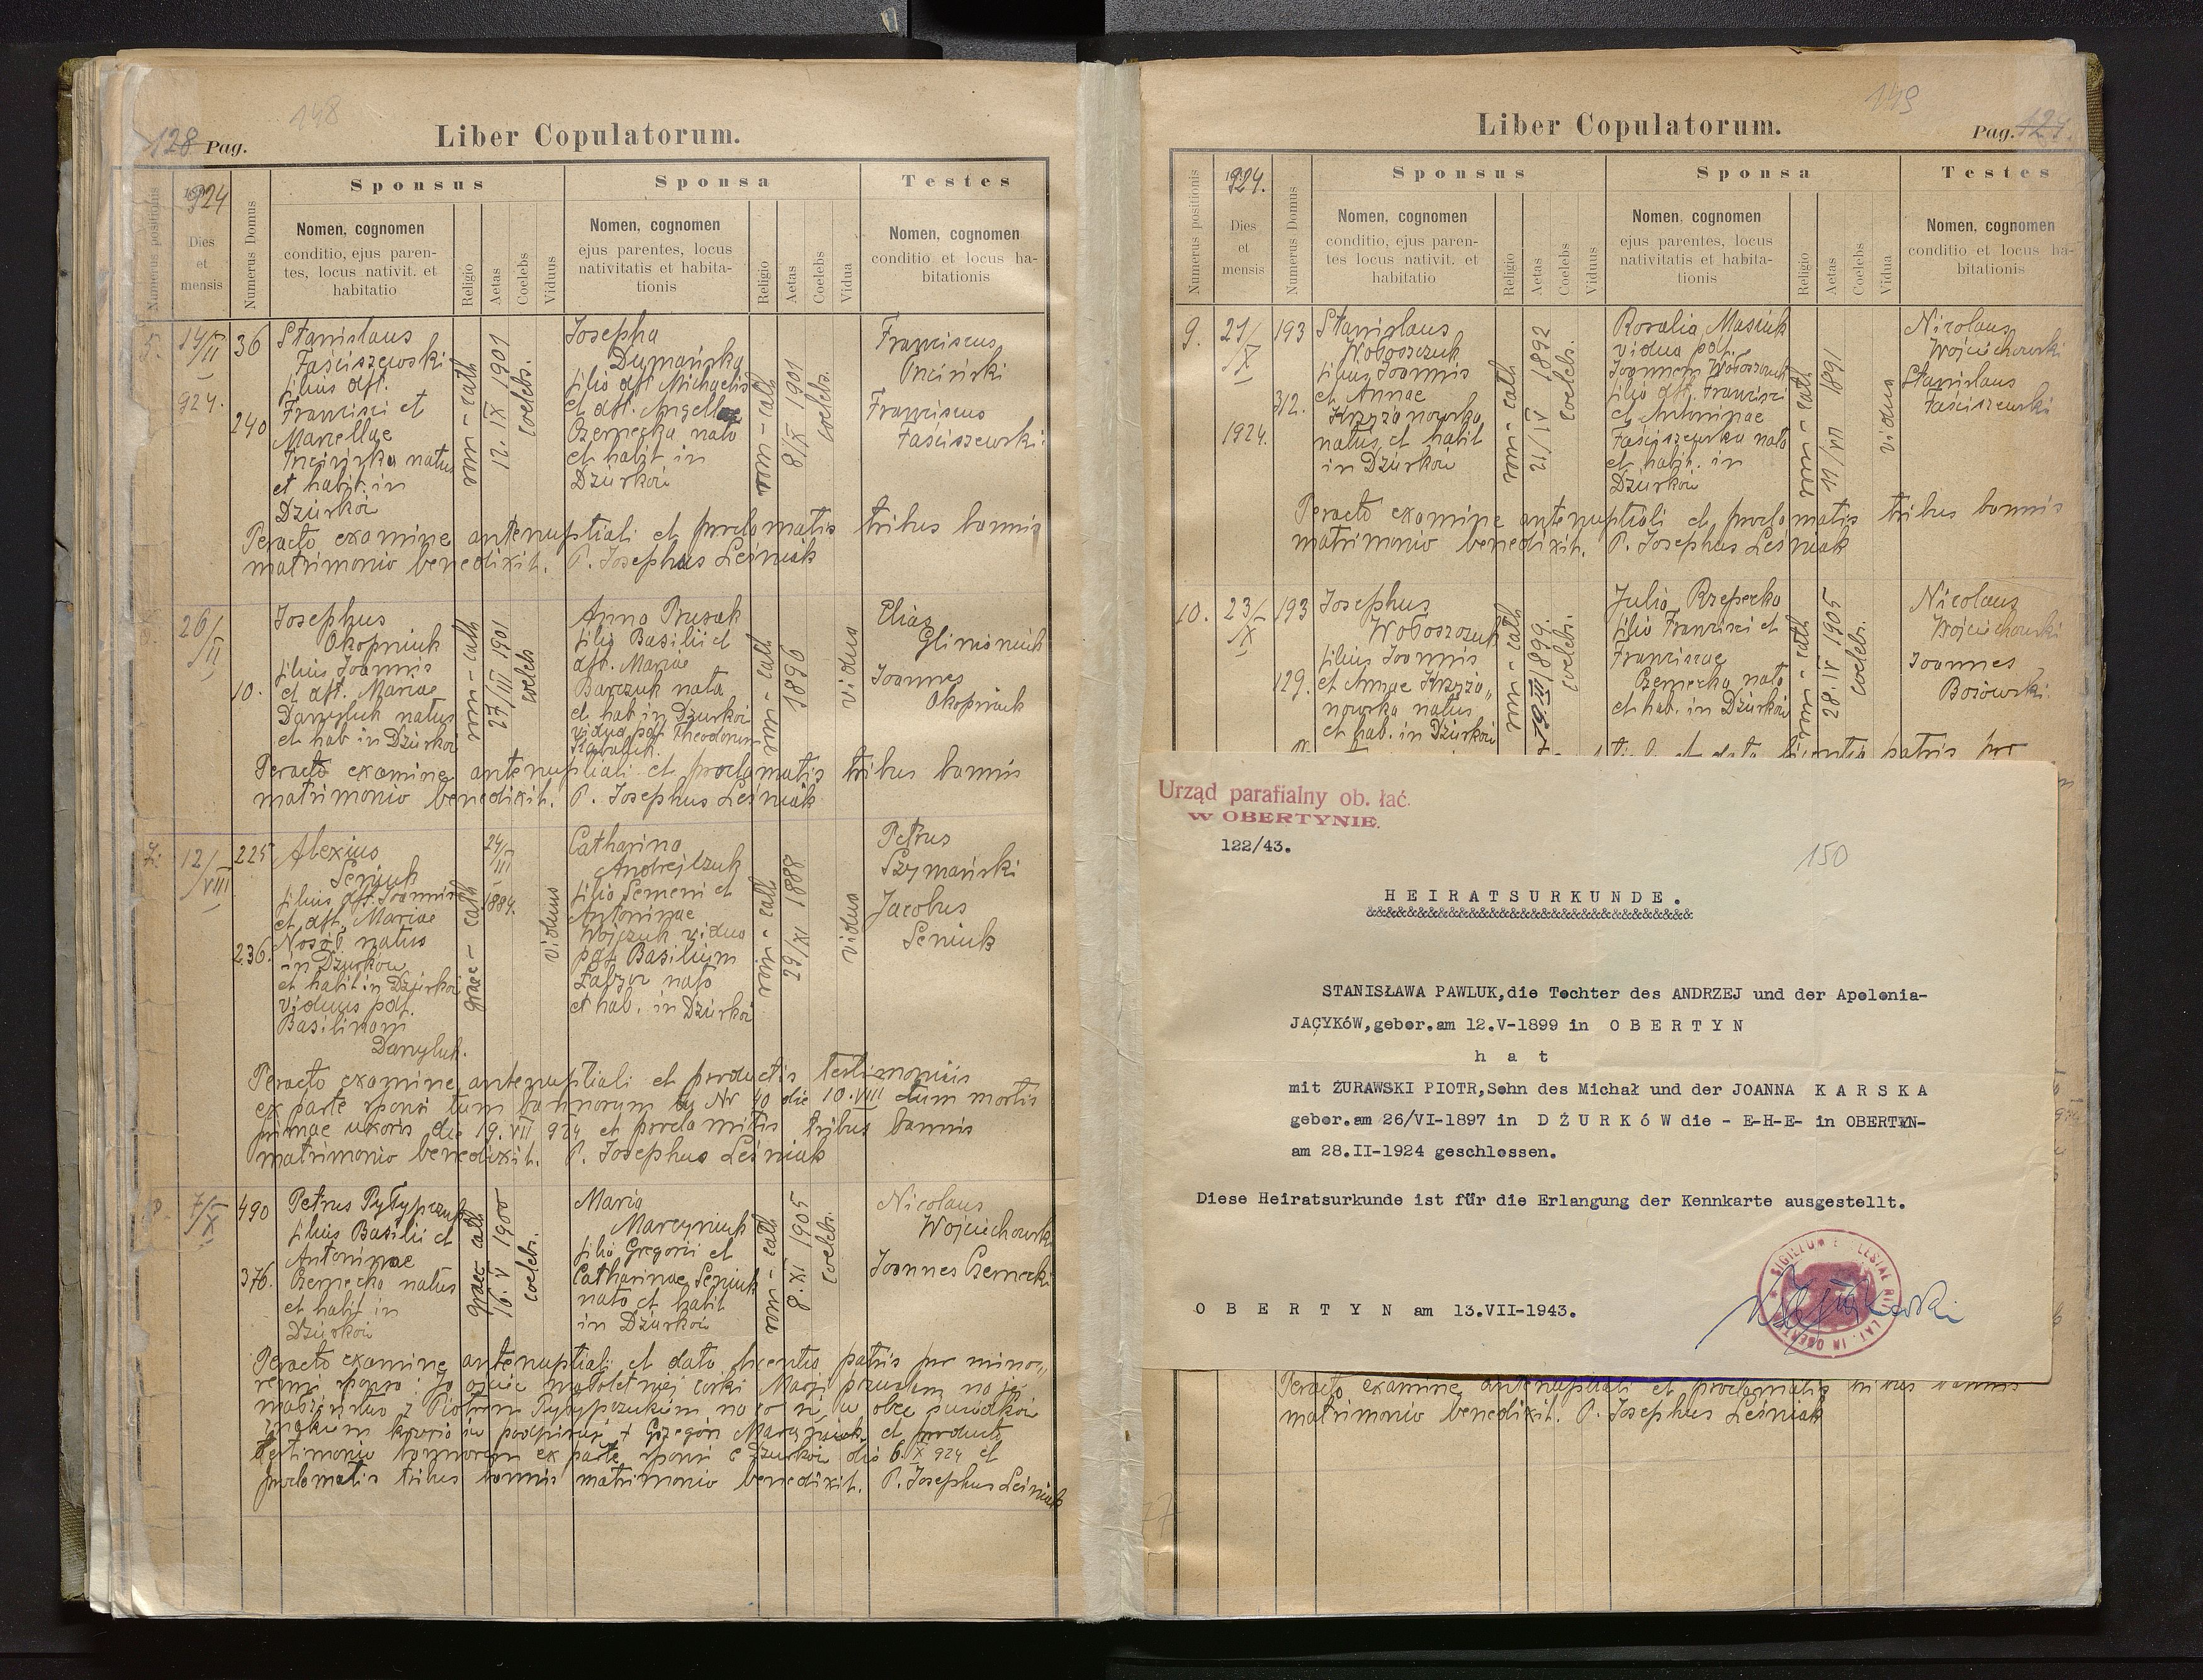 148
128 Pag.
Liber Copulatorum.
Numerus positionis
1924
Dies
et
mensis
Numerus Domus
Sponsus
Nomen, cognomen
conditio, ejus paren-
tes, locus nativit. et
habitatio
Religio
Aetas
Coelebs
Viduus
Sponsa
Nomen, cognomen
ejus parentes, locus
nativitatis et habita-
tionis
Religio
Aetas
Coelebs
Vidua
Testes
Nomen, cognomen
conditio et locus ha-
bitationis
5.
14/II
924.
36
240
Stanislaus
Faściszewski
filius dft.
Francisci et
Marcellae
natus
et habit. in
Dżurków
rom-cath
12. IX 1901
coelebs.
Josepha
Dymańska
filia dft Michaelis
et dft. Angellae
Czernecka nata
et habit in
Dżurków
rom-cath
8/X 1901
coelebs.
Franciscus
Inciński
Franciscus
Faściszewski
Peracto examine antenuptiali et proclamatis tribus bannis
matrimonio benedixit. P. Josephus Leśniak
26/II
10.
Josephus
Okopniuk
filius Joannis
et dft. Mariae
Danyluk natus
et hab in Dżurków
rom-cath
27/III 1901
coelebs
Anna Prusak
filia Basilii et
dft. Mariae
Barczuk nata
et hab in Dżurków
vidua pdf Theodorum
rom-cath
1896
vidua
Elias
Joannes
Okopniuk
Peracto examine antenuptiali et proclamatis tribus bannis
matrimonio benedixit. P. Josephus Leśniak
7.
12/VIII
225
236.
Alexius
Seniuk
filius dft. Joannis
et dft. Mariae
Nosób natus
in Dżurków
et habit in Dżurków
viduus pdf.
Basilinam
Danyluk.
graec-cath
24/III 1884.
viduus
Catharina
Andrejczuk
filia Semeni et
Antoninae
Wojczuk vidua
pdf Basilium
nata
et hab. in Dżurków
rom-cath
29/XI 1888
vidua
Petrus
Szymański
Jacobus
Seniuk
Peracto examine antenuptiali et productis testimoniis
ex parte sponsi tum bannorum Nr 40 die 10.VIII tum mortis
primae uxoris die 19.VII 924 et proclamatis tribus bannis
matrimonio benedixit. P. Josephus Leśniak
8.
7/X
490
376.
Petrus Pyłypczuk
filius Basilii et
Antoninae
Czernecka natus
et habit in
Dżurków
graec-cath
16. V 1900
coelebs.
Maria
Marcyniuk
filia Gregorii et
Catharinae Seniuk
nata et habit
in Dżurków
rom-cath
8. XI 1905
coelebs.
Nicolaus
Wojciechowski
Joannes Czernecki
Peracto examine antenuptiali et data licentia patris pro mino-
renni sponsa: Ja ojciec małoletniej córki Marji pozwalam na jej
małżeństwo z Piotrem Pyłypczukiem na co się w obec świadków
znakiem krzyża św podpisuję + Grzegorz Marcyniuk et producto
testimonio bannorum ex parte sponsi e Dżurków die 6 X 924 et
proclamatis tribus bannis matrimonio benedixit. P. Josephus Leśniak
149
Liber Copulatorum.
Pag.
Numerus positionis
1924.
Dies
et
mensis
Numerus Domus
Sponsus
Nomen, cognomen
conditio, ejus paren-
tes locus nativit. et
habitatio
Religio
Aetas
Coelebs
Viduus
Sponsa
Nomen, cognomen
ejus parentes, locus
nativitatis et habita-
tionis
Religio
Aetas
Coelebs
Vidua
Testes
Nomen, cognomen
conditio et locus ha-
bitationis
9.
21/X
1924.
193
312.
Stanislaus
Wołoszczuk
filius Joannis
et Annae
Krzyżanowska
natus et habit
in Dżurków
rom-cath
21/IV 1892
coelebs.
Rosalia Masiuk
vidua pdf.
Joannem Wołoszczuk
filia dft. Francisci
et Antoninae
Faściszewska nata
et habit. in
Dżurków
rom-cath
11/VII 1891
vidua
Nicolaus
Wojciechowski
Stanislaus
Faściszewski
Peracto examine antenuptiali et proclamatis tribus bannis
matrimonio benedixit. P. Josephus Leśniak
10.
23/X
193
129.
Josephus
Wołoszczuk
filius Joannis
et Annae Krzyża-
nowska natus
et hab. in Dżurków
rom-cath
1899.
coelebs.
Julia Rzepecka
filia Francisci et
Franciscae
Czernecka nata
et hab. in Dżurków
rom-cath
28. IV 1905
coelebs.
Nicolaus
Wojciechowski
Joannes
Borowski.
Urząd parafialny ob. łać.
W OBERTYNIE.
122/43.
150
HEIRATSURKUNDE.
&&&&&&&&&&&&&&&&&&&&&&&&&&&&&&&&&
STANISŁAWA PAWLUK,die Tochter des ANDRZEJ und der Apolonia-
JACYKÓW,gebor.am 12.V-1899 in O B E R T Y N
h a t
mit ŻURAWSKI PIOTR,Sohn des Michał und der JOANNA K A R S K A
gebor.am 26/VI-1897 in D Ż U R K Ó W die - E-H-E- in OBERTYN-
am 28.II-1924 geschlossen.
Diese Heiratsurkunde ist für die Erlangung der Kennkarte ausgestellt.
O B E R T Y N am 13.VII-1943.
Peracto examine antenuptiali et proclamatis tribus bannis
matrimonio benedixit. P. Josephus Leśniak